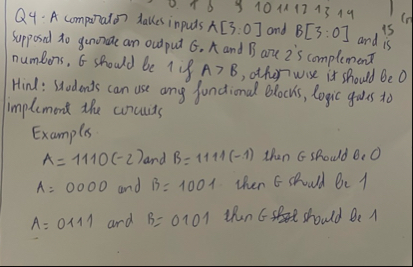 9 10 11 12 13 14 15
Q4: A comparator takes inputs A[3:0] and B[3:0] and is
supposed to generate an output G. A and B are 2's complement
numbers. G should be 1 if A > B, otherwise it should be 0
Hint: Students can use any functional blocks, logic gates to
implement the circuits
Examples
A = 1110(-2) and B = 1111(-1) then G should be 0
A = 0000 and B = 1001. then G should be 1
A = 0111 and B = 0101 then G should be 1